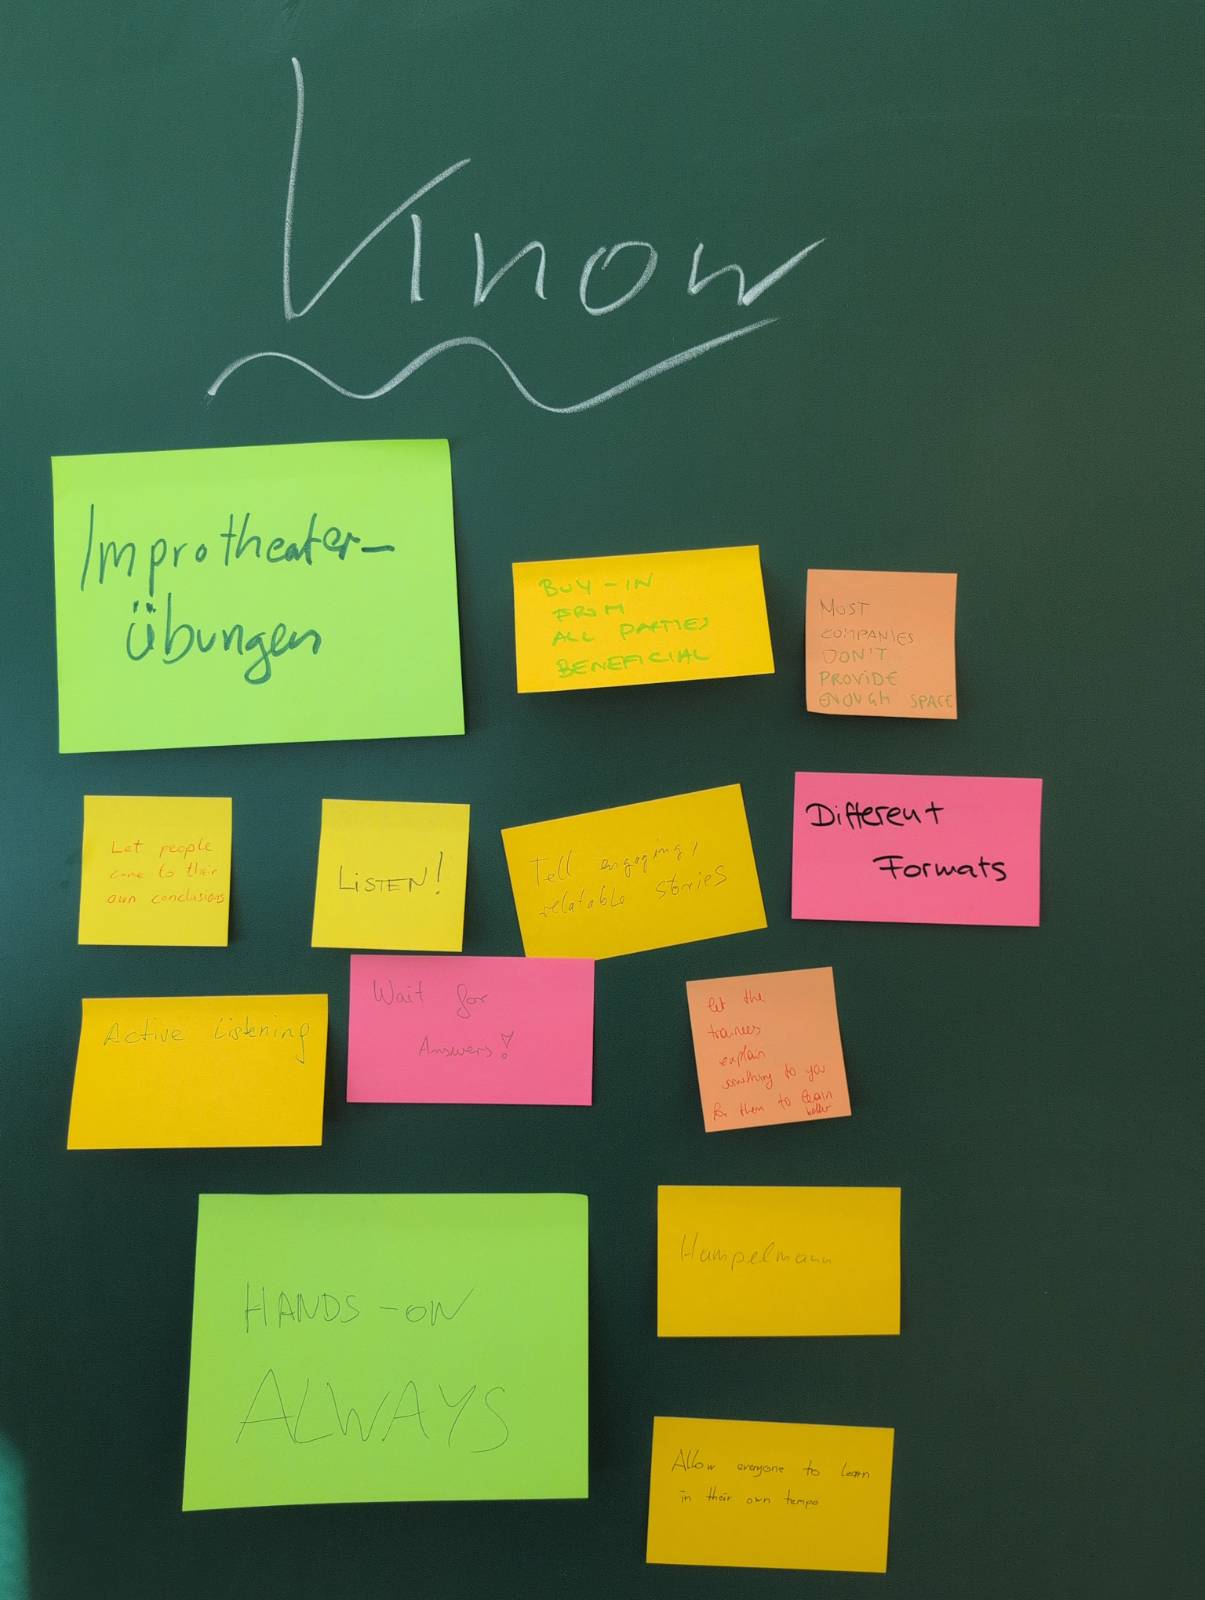 Know
Improtheater-
übungen
BUY-IN
FROM
ALL PARTIES
BENEFICIAL
MOST
COMPANIES
DON'T
PROVIDE
ENOUGH SPACE
Let people
come to their
own conclusions
LISTEN!
Tell engaging,
relatable stories
Different
Formats
Active Listening
Wait for
Answers!
let the
trainees
explain
something to you
for them to learn
better
HANDS-ON
ALWAYS
Hampelmann
Allow everyone to learn
in their own tempo